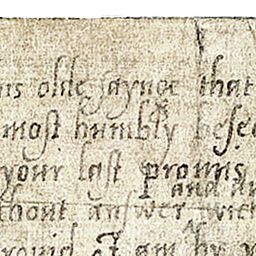 ns olde saynge that
most humbly besee
your last promis
and an
thout answer with
I am by y